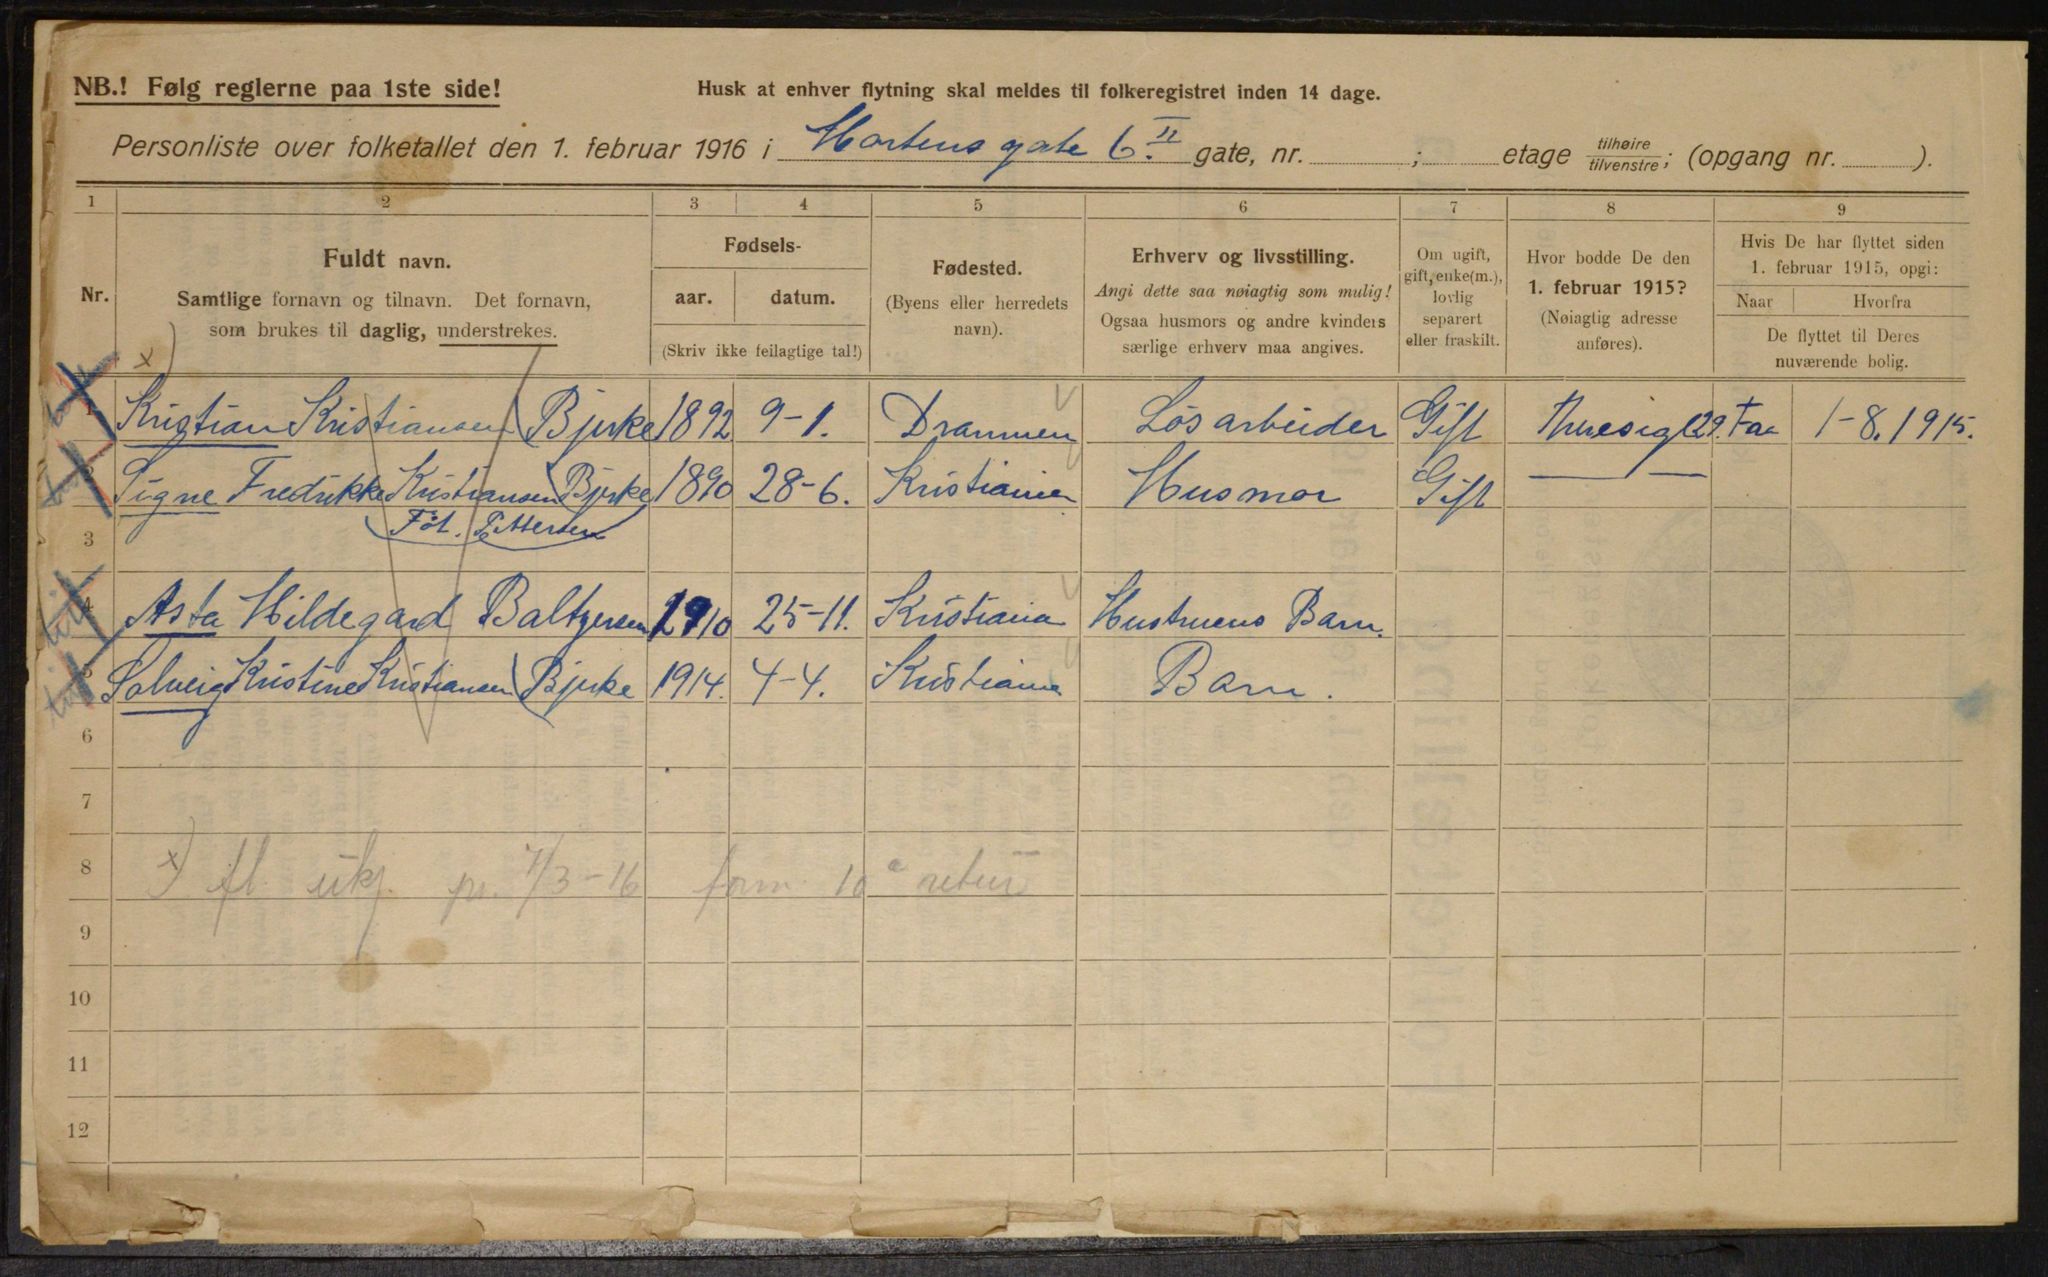 NB.! Følg reglerne paa 1ste side!
Husk at enhver flytning skal meldes til folkeregistret inden 14 dage.
Personliste over folketallet den 1. februar 1916 i Mortens gate 6. II gate, nr. ; etage tilhøire tilvenstre; (opgang nr. ).
1 2 3 4 5 6 7 8 9
Nr.
Fuldt navn.
Samtlige fornavn og tilnavn. Det fornavn,
som brukes til daglig, understrekes.
Fødsels-
aar. datum.
(Skriv ikke feilagtige tal!)
Fødested.
(Byens eller herredets
navn).
Erhverv og livsstilling.
Angi dette saa nøiagtig som mulig!
Ogsaa husmors og andre kvinders
særlige erhverv maa angives.
Om ugift,
gift, enke(m.),
lovlig
separert
eller fraskilt.
Hvor bodde De den
1. februar 1915?
(Nøiagtig adresse
anføres).
Hvis De har flyttet siden
1. februar 1915, opgi:
Naar Hvorfra
De flyttet til Deres
nuværende bolig.
x)
1 Kristian Kristiansen (Bjerke 1892 9-1. Drammen Løsarbeider Gift 29. 1-8.1915.
2 Signe Fredrikke Kristiansen (Bjerke 1890 28-6. Kristiania Husmor Gift — —
3 Føt. Pettersen
4 Asta Hildegard Baltzersen 1910 25-11. Kristiania Hustruens Barn.
5 Solveig Kristine Kristiansen (Bjerke 1914. 4-4. Kristiania Barn.
6
7
8 x) fl. ukj. pr. 7/3-16 form. 10 retur
9
10
11
12